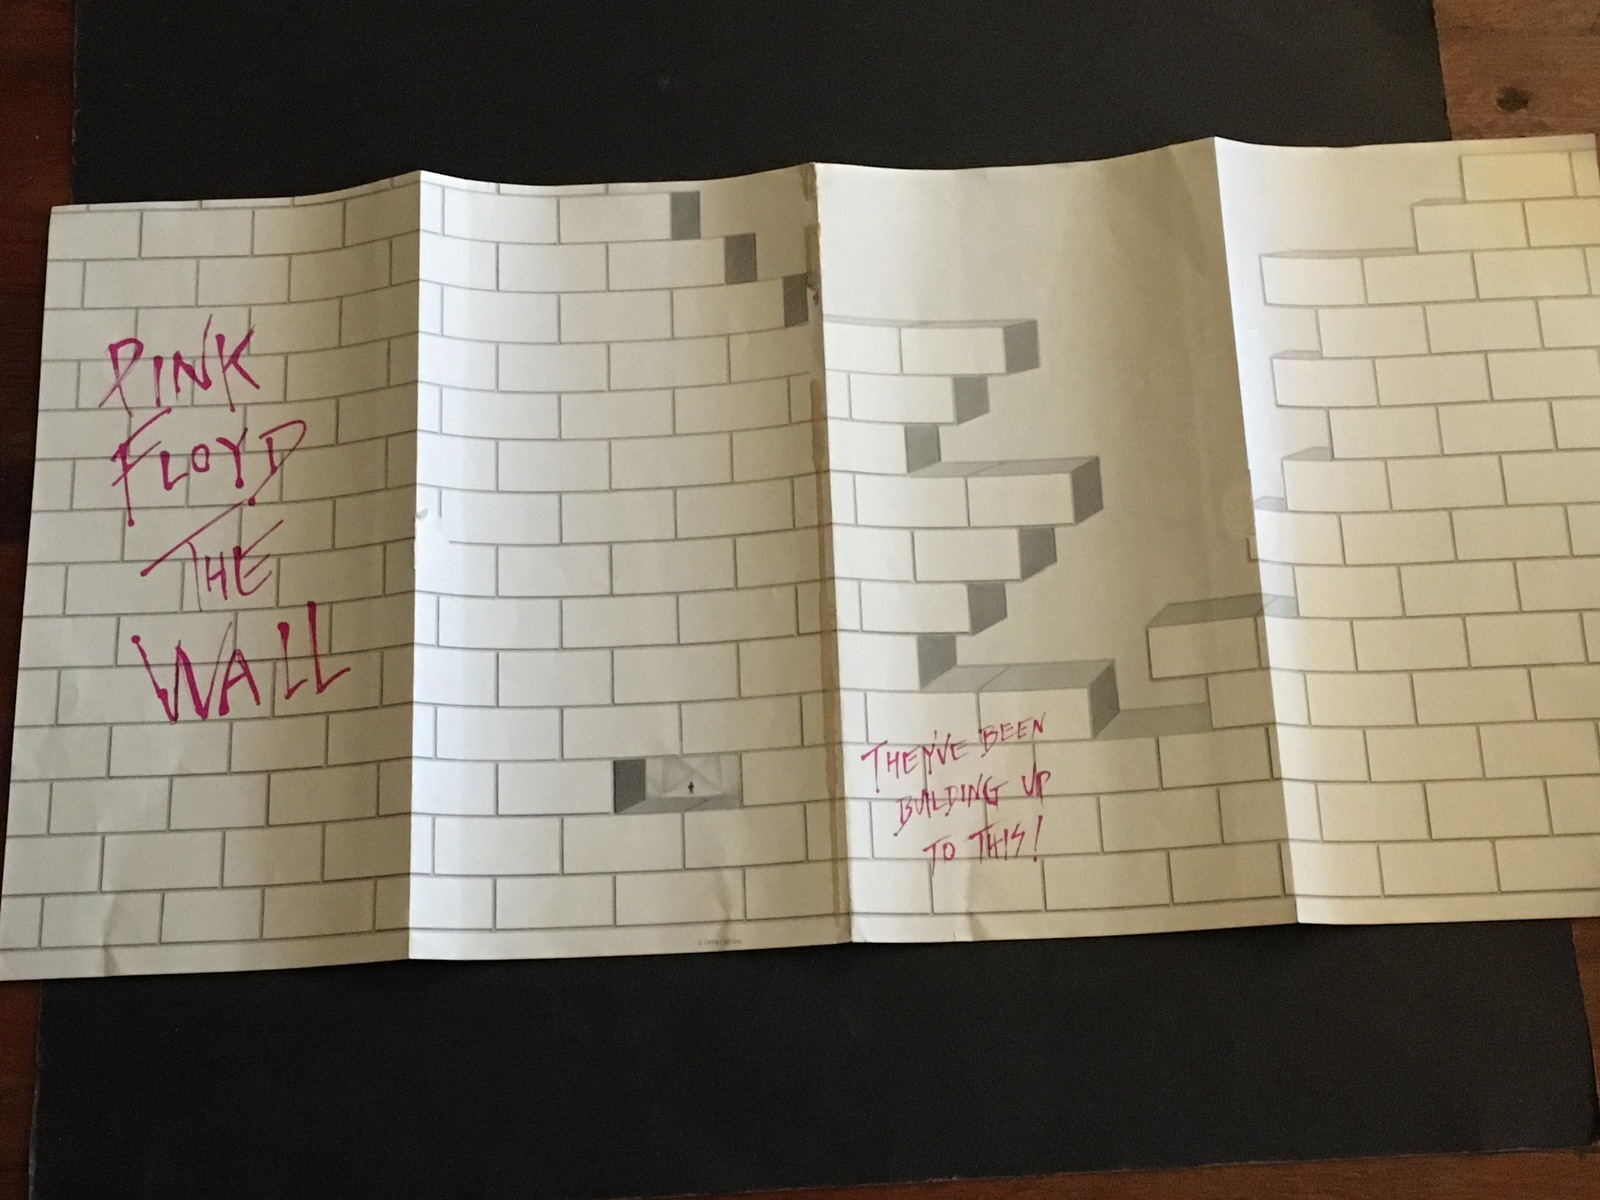 PINK
FLOYD
THE
WALL
THEY'VE BEEN
BUILDING UP
TO THIS!